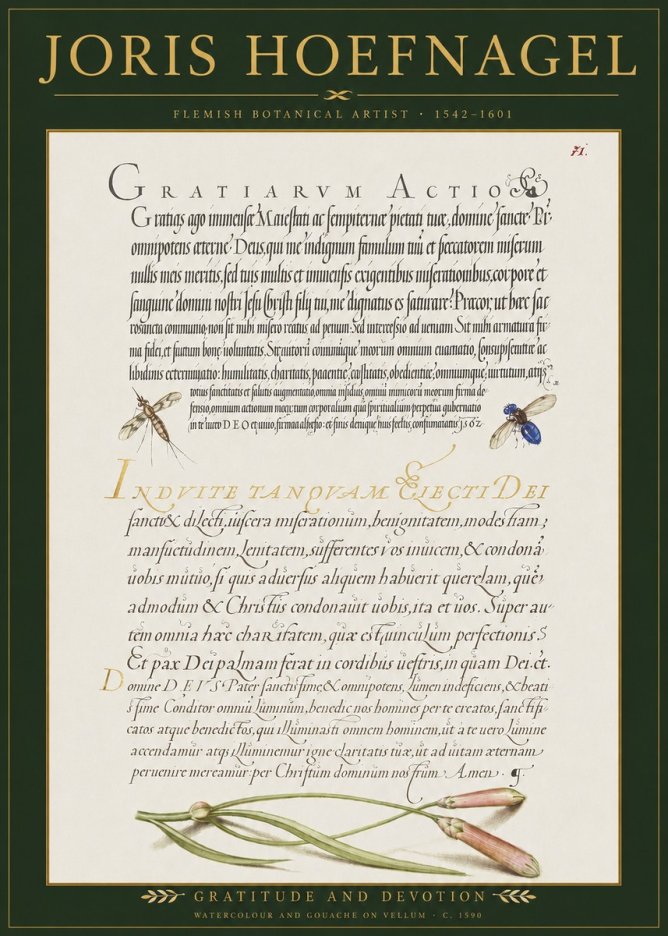 JORIS HOEFNAGEL
FLEMISH BOTANICAL ARTIST · 1542–1601
71.
GRATIARVM ACTIO
Gratias ago immensæ Maiestati ac sempiternæ pietati tuæ, domine sancte Pr
omnipotens æterne Deus, qui me indignum famulum tuũ et peccatorem miserum
nullis meis meritis, sed tuis multis et immensis exigentibus miserationibus, corpore et
sanguine domini nostri Jesu Christi filij tui, me dignatus es saturare: Præcor, ut hæc sac
rosancta communio, non sit mihi misero reatus ad penum: Sed intercessio ad ueniam Sit mihi armatura fir-
ma fidei, et scutum bonę uoluntatis. Sit uitiorũ communiq̃ meorum omnium euacuatio, Concupiscentiæ ac
libidinis exterminatio: humilitatis, charitatis, patientiæ, castitatis, obedientiæ, omniumque, uirtutum, atq̃
totius sanctitatis et salutis augmentatio, omnia insidias omniũ inimicorũ meorum firma de
fensio, omnium actionum meorum corporalium quã spiritualium perpetua gubernatio
in te uero DEO et uiuo, firma adhæsio: et finis denique huius felix, confirmatio. 1562
INDVITE TANQVAM EIECTI DEI
sancti & dilecti, uiscera miserationum, benignitatem, modestiam,
mansuetudinem, lenitatem, sufferentes uos inuicem, & condonã
uobis mutuo, si quis aduersus aliquem habuerit querelam, quẽ
admodum & Christus condonauit uobis, ita et uos. Super au-
tem omnia hæc charitatem, quæ est uinculum perfectionis.
Et pax Dei palmam ferat in cordibus uestris, in quam Dei. et.
Domine DEVS Pater sanctissime, & omnipotens, Lumen indeficiens, & beati
ssime Conditor omniũ Luminum, benedic nos homines per te creatos, sanctifi-
catos atque benedictos, qui illuminasti omnem hominem, ut a te uero Lumine
accendamur atq̃ illuminemur igne claritatis tuæ, ut ad uitam æternam
peruenire mereamur. per Christum dominum nostrum Amen.
GRATITUDE AND DEVOTION
WATERCOLOUR AND GOUACHE ON VELLUM · C. 1590